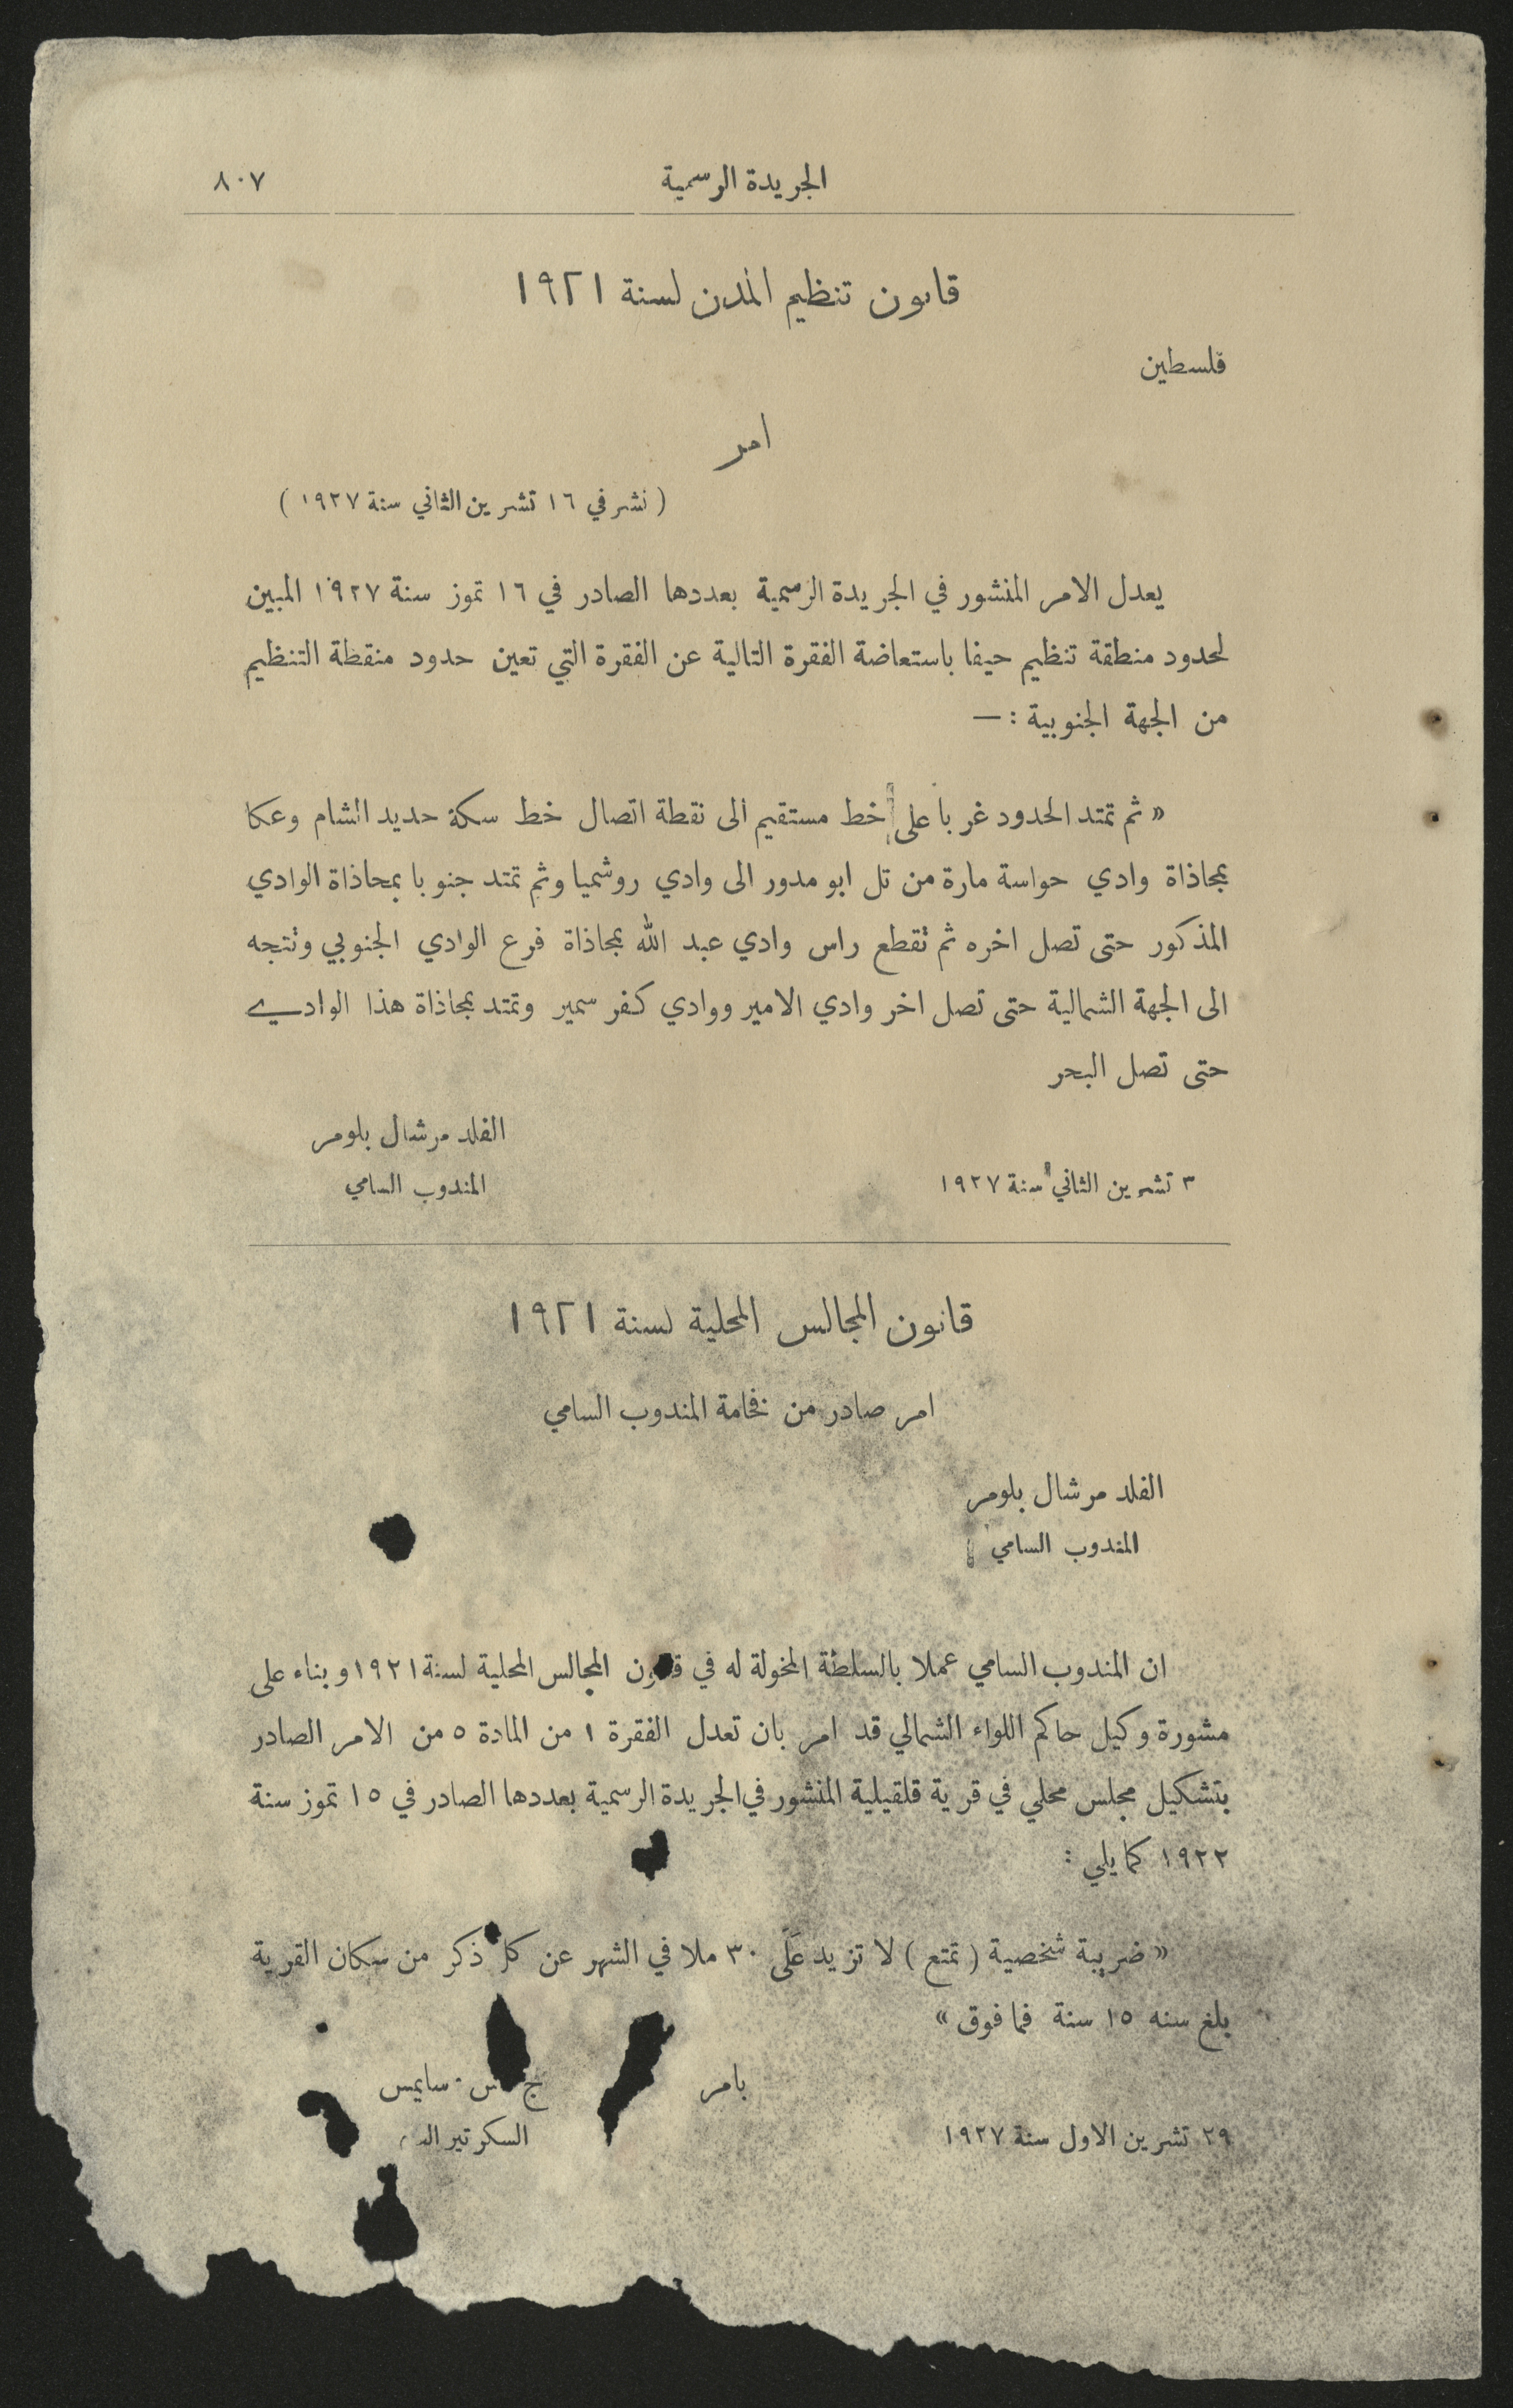 الجريدة الرسمية ٨٠٧
قانون تنظيم المدن لسنة ١٩٢١
فلسطين
امر
( نشر في ١٦ تشرين الثاني سنة ١٩٢٧ )
يعدل الامر المنشور في الجريدة الرسمية بعددها الصادر في ١٦ تموز سنة ١٩٢٧ المبين
لحدود منطقة تنظيم حيفا باستعاضة الفقرة التالية عن الفقرة التي تعين حدود منقطة التنظيم
من الجهة الجنوبية : —
« ثم تمتد الحدود غربا على خط مستقيم الى نقطة اتصال خط سكة حديد الشام وعكا
بمحاذاة وادي حواسة مارة من تل ابو مدور الى وادي روشميا وثم تمتد جنوبا بمحاذاة الوادي
المذكور حتى تصل اخره ثم تقطع راس وادي عبد الله بمحاذاة فرع الوادي الجنوبي وتتجه
الى الجهة الشمالية حتى تصل اخر وادي الامير ووادي كفر سمير وتمتد بمحاذاة هذا الوادي
حتى تصل البحر
الفلد مرشال بلومر
٣ تشرين الثاني سنة ١٩٢٧ المندوب السامي
قانون المجالس المحلية لسنة ١٩٢١
امر صادر من فخامة المندوب السامي
الفلد مرشال بلومر
المندوب السامي
ان المندوب السامي عملا بالسلطة المخولة له في قانون المجالس المحلية لسنة ١٩٢١ وبناء على
مشورة وكيل حاكم اللواء الشمالي قد امر بان تعدل الفقرة ١ من المادة ٥ من الامر الصادر
بتشكيل مجلس محلي في قرية قلقيلية المنشور في الجريدة الرسمية بعددها الصادر في ١٥ تموز سنة
١٩٢٢ كما يلي :
« ضريبة شخصية ( تمتع ) لا تزيد على ٣٠ ملا في الشهر عن كل ذكر من سكان القرية
بلغ سنه ١٥ سنة فما فوق »
بامر ج س . سايمس
٢٩ تشرين الاول سنة ١٩٢٧ السكرتير